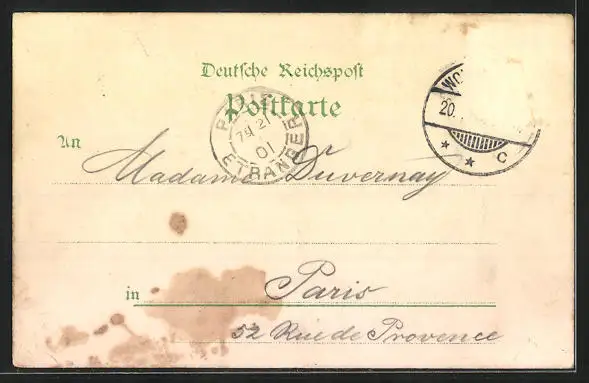 Deutsche Reichspost
Postkarte
An
Madame Duvernay
in Paris
52 Rue de Provence
PARIS
7E 21
01
ETRANGER
WO
20.
C